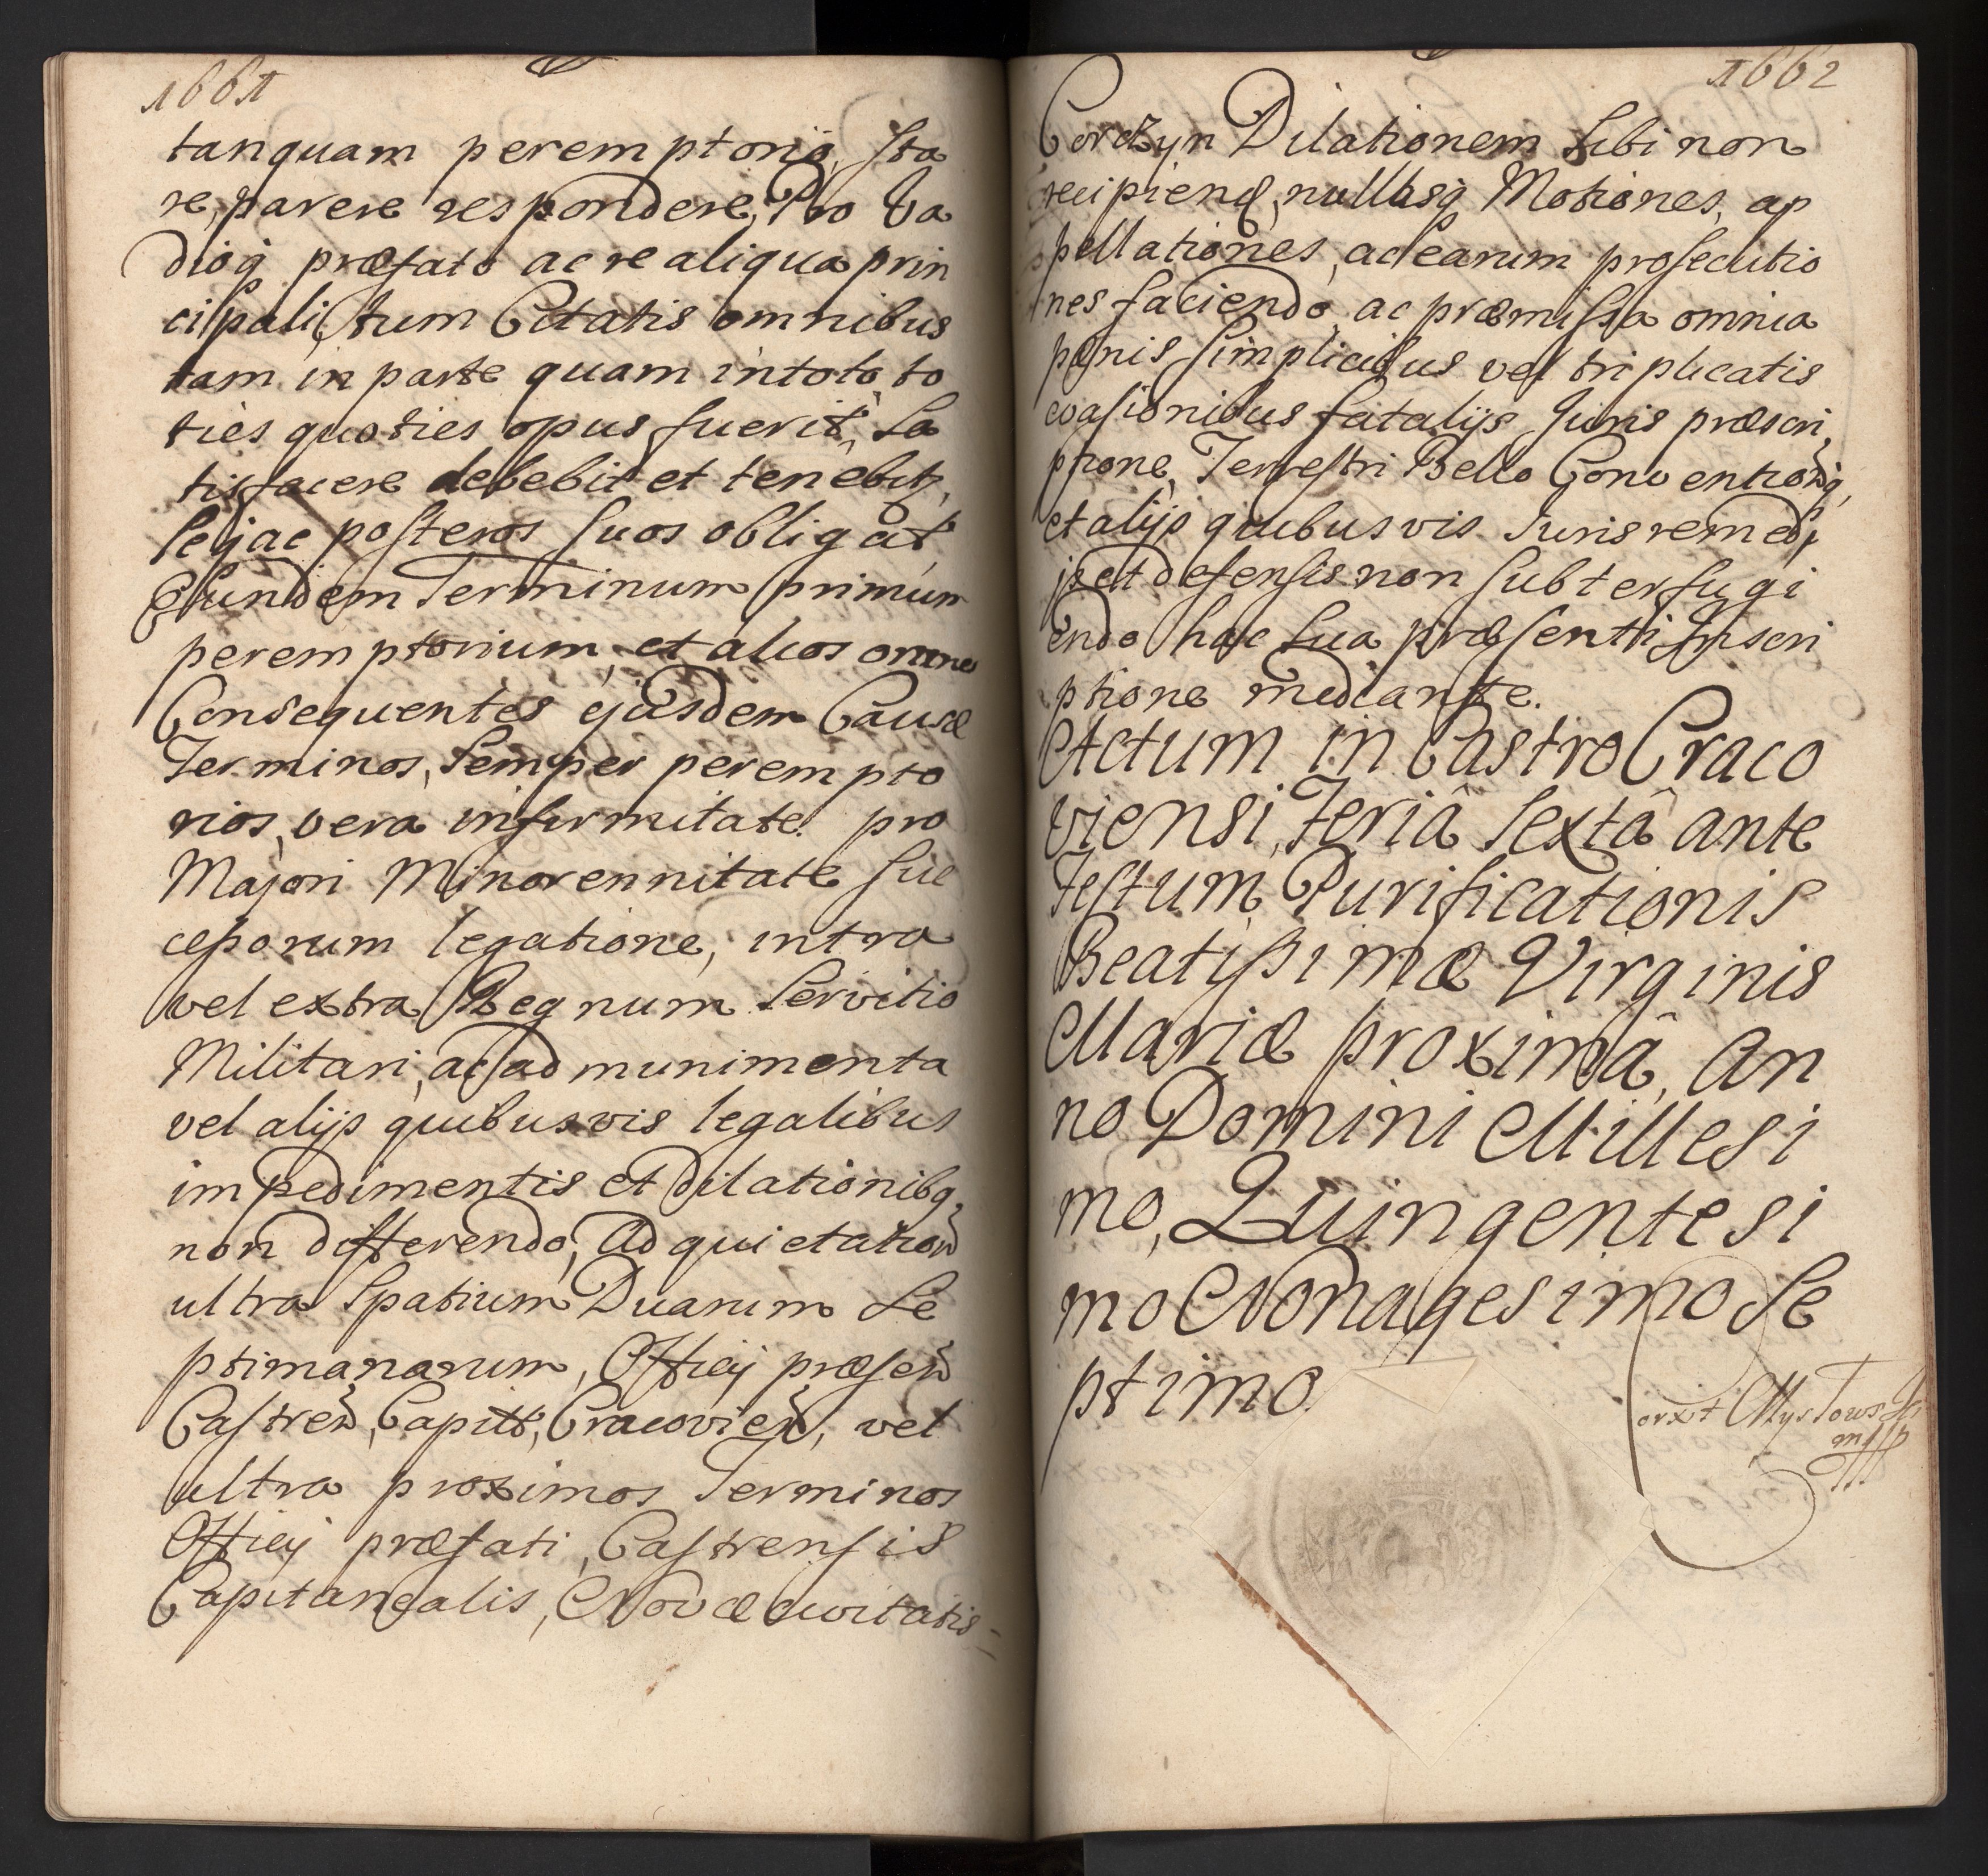 1661
tanquam peremptorio, sta
re, parere respondere, Pro Va
dioq præfato ac re aliqua prin
cipali, tum Citatis omnibus
tam in parte quam in toto to
ties quoties opus fuerit, Sa
tisfacere debebit et tenebitz,
Se, ac posteros suos obligat
Eundem Terminum primum
peremptorium, et alios omnes
Consequentes ejusdem Causæ
Terminos, Semper perempto
rios, vera infirmitate pro
Majori Minorennitate suc
ceßorum legatione, intra
vel extra Regnum Servitio
Militari, ac ad munimenta
vel alijs quibusvis legalibus
impedimentis et dilationibq,
non differendo, Ad quietation
ultra Spatium Duarum Se
ptimanarum, Officij præsen
Castren, Capitt, Cracovien, vel
ultra proximos Terminos
Officij præfati, Castrensis
Capitanealis, Novæ Civitatis=
1662
Corczyn Dilationem Sibi non
recipiend, nullasq Motiones, ap
pellationes, ac earum prosecutio
nes faciendo, ac præmissa omnia
pænis simplicibus vel triplicatis
evasionibus fatalijs Juris præscri,
ptione, Terrestri Bello Conventionq,
et alijs quibusvis Juris remedi,
js et defensis non subterfugi
endo hac sua præsenti Inscri
ptione mediante.
Actum in Castro Craco
viensi, Feriâ Sextâ ante
Festum Purificationis
Beatißimæ Virginis
Mariæ proximâ, An
no Domini Millesi
mo, Quingentesi
mo Nonagesimo Se
ptimo.